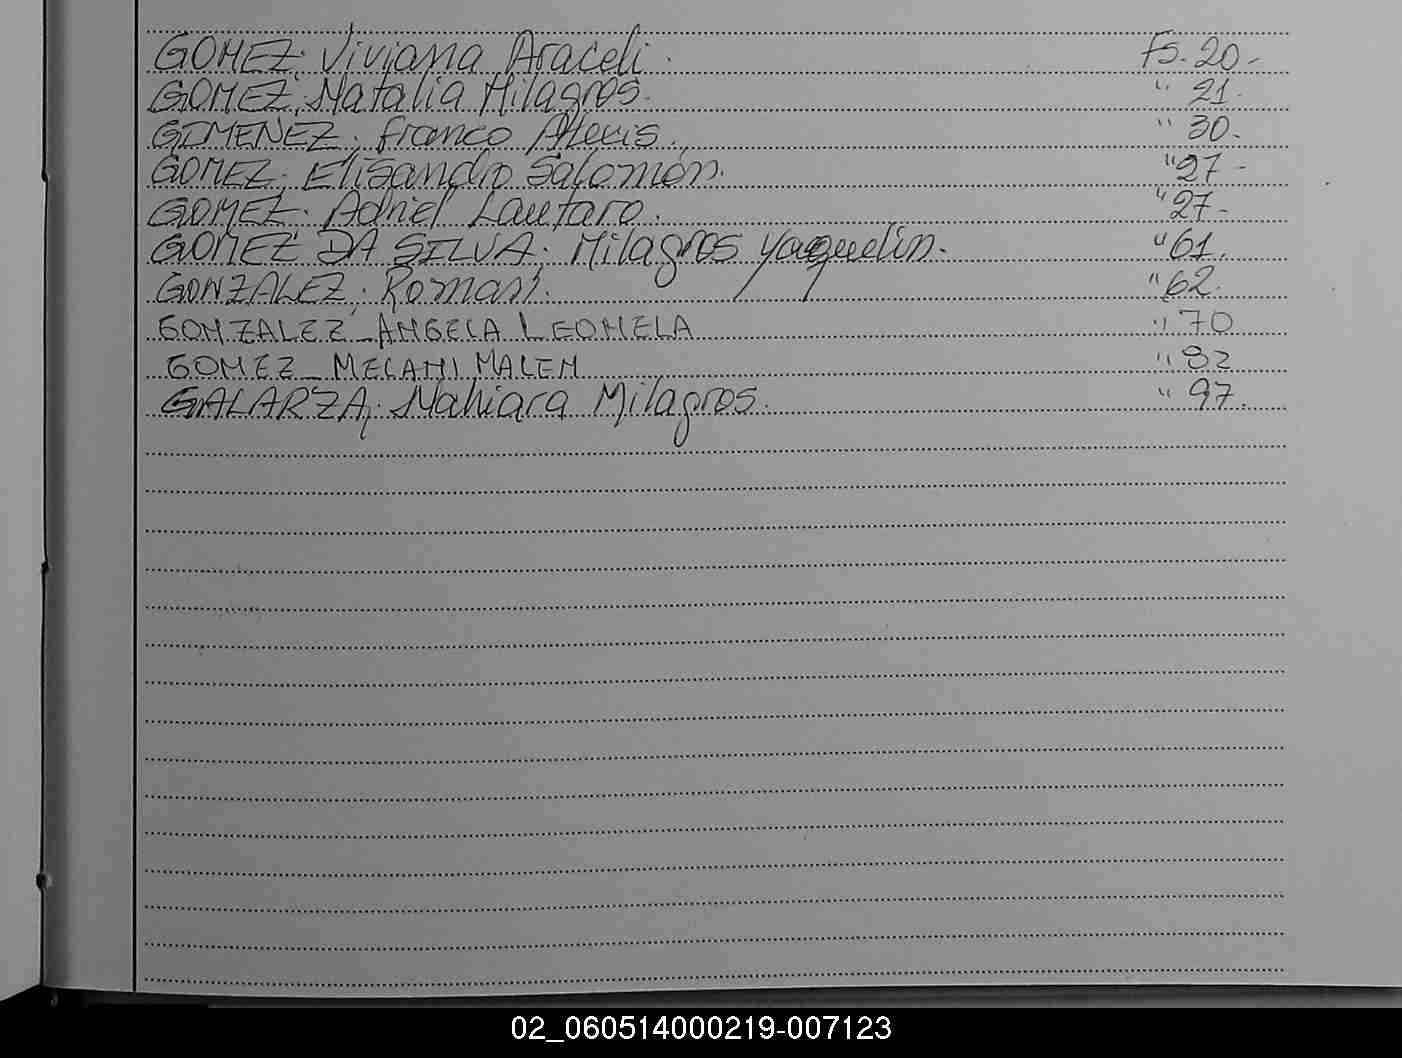 GOMEZ: Viviana Araceli. Fs. 20-
GOMEZ; Natalia Milagros. " 21.
GIMENEZ; Franco Alexis. " 30.
GOMEZ; Elisandro Salomón. " 27-
GOMEZ. Adriel Lautaro. " 27-
GOMEZ DA SILVA; Milagros Yaquelin. " 61.
GONZALEZ; Roman. " 62.
GONZALEZ_ANGELA LEONELA " 70
GOMEZ_MELANI MALEN " 82
GALARZA; Nahiara Milagros. " 97.
02_060514000219-007123